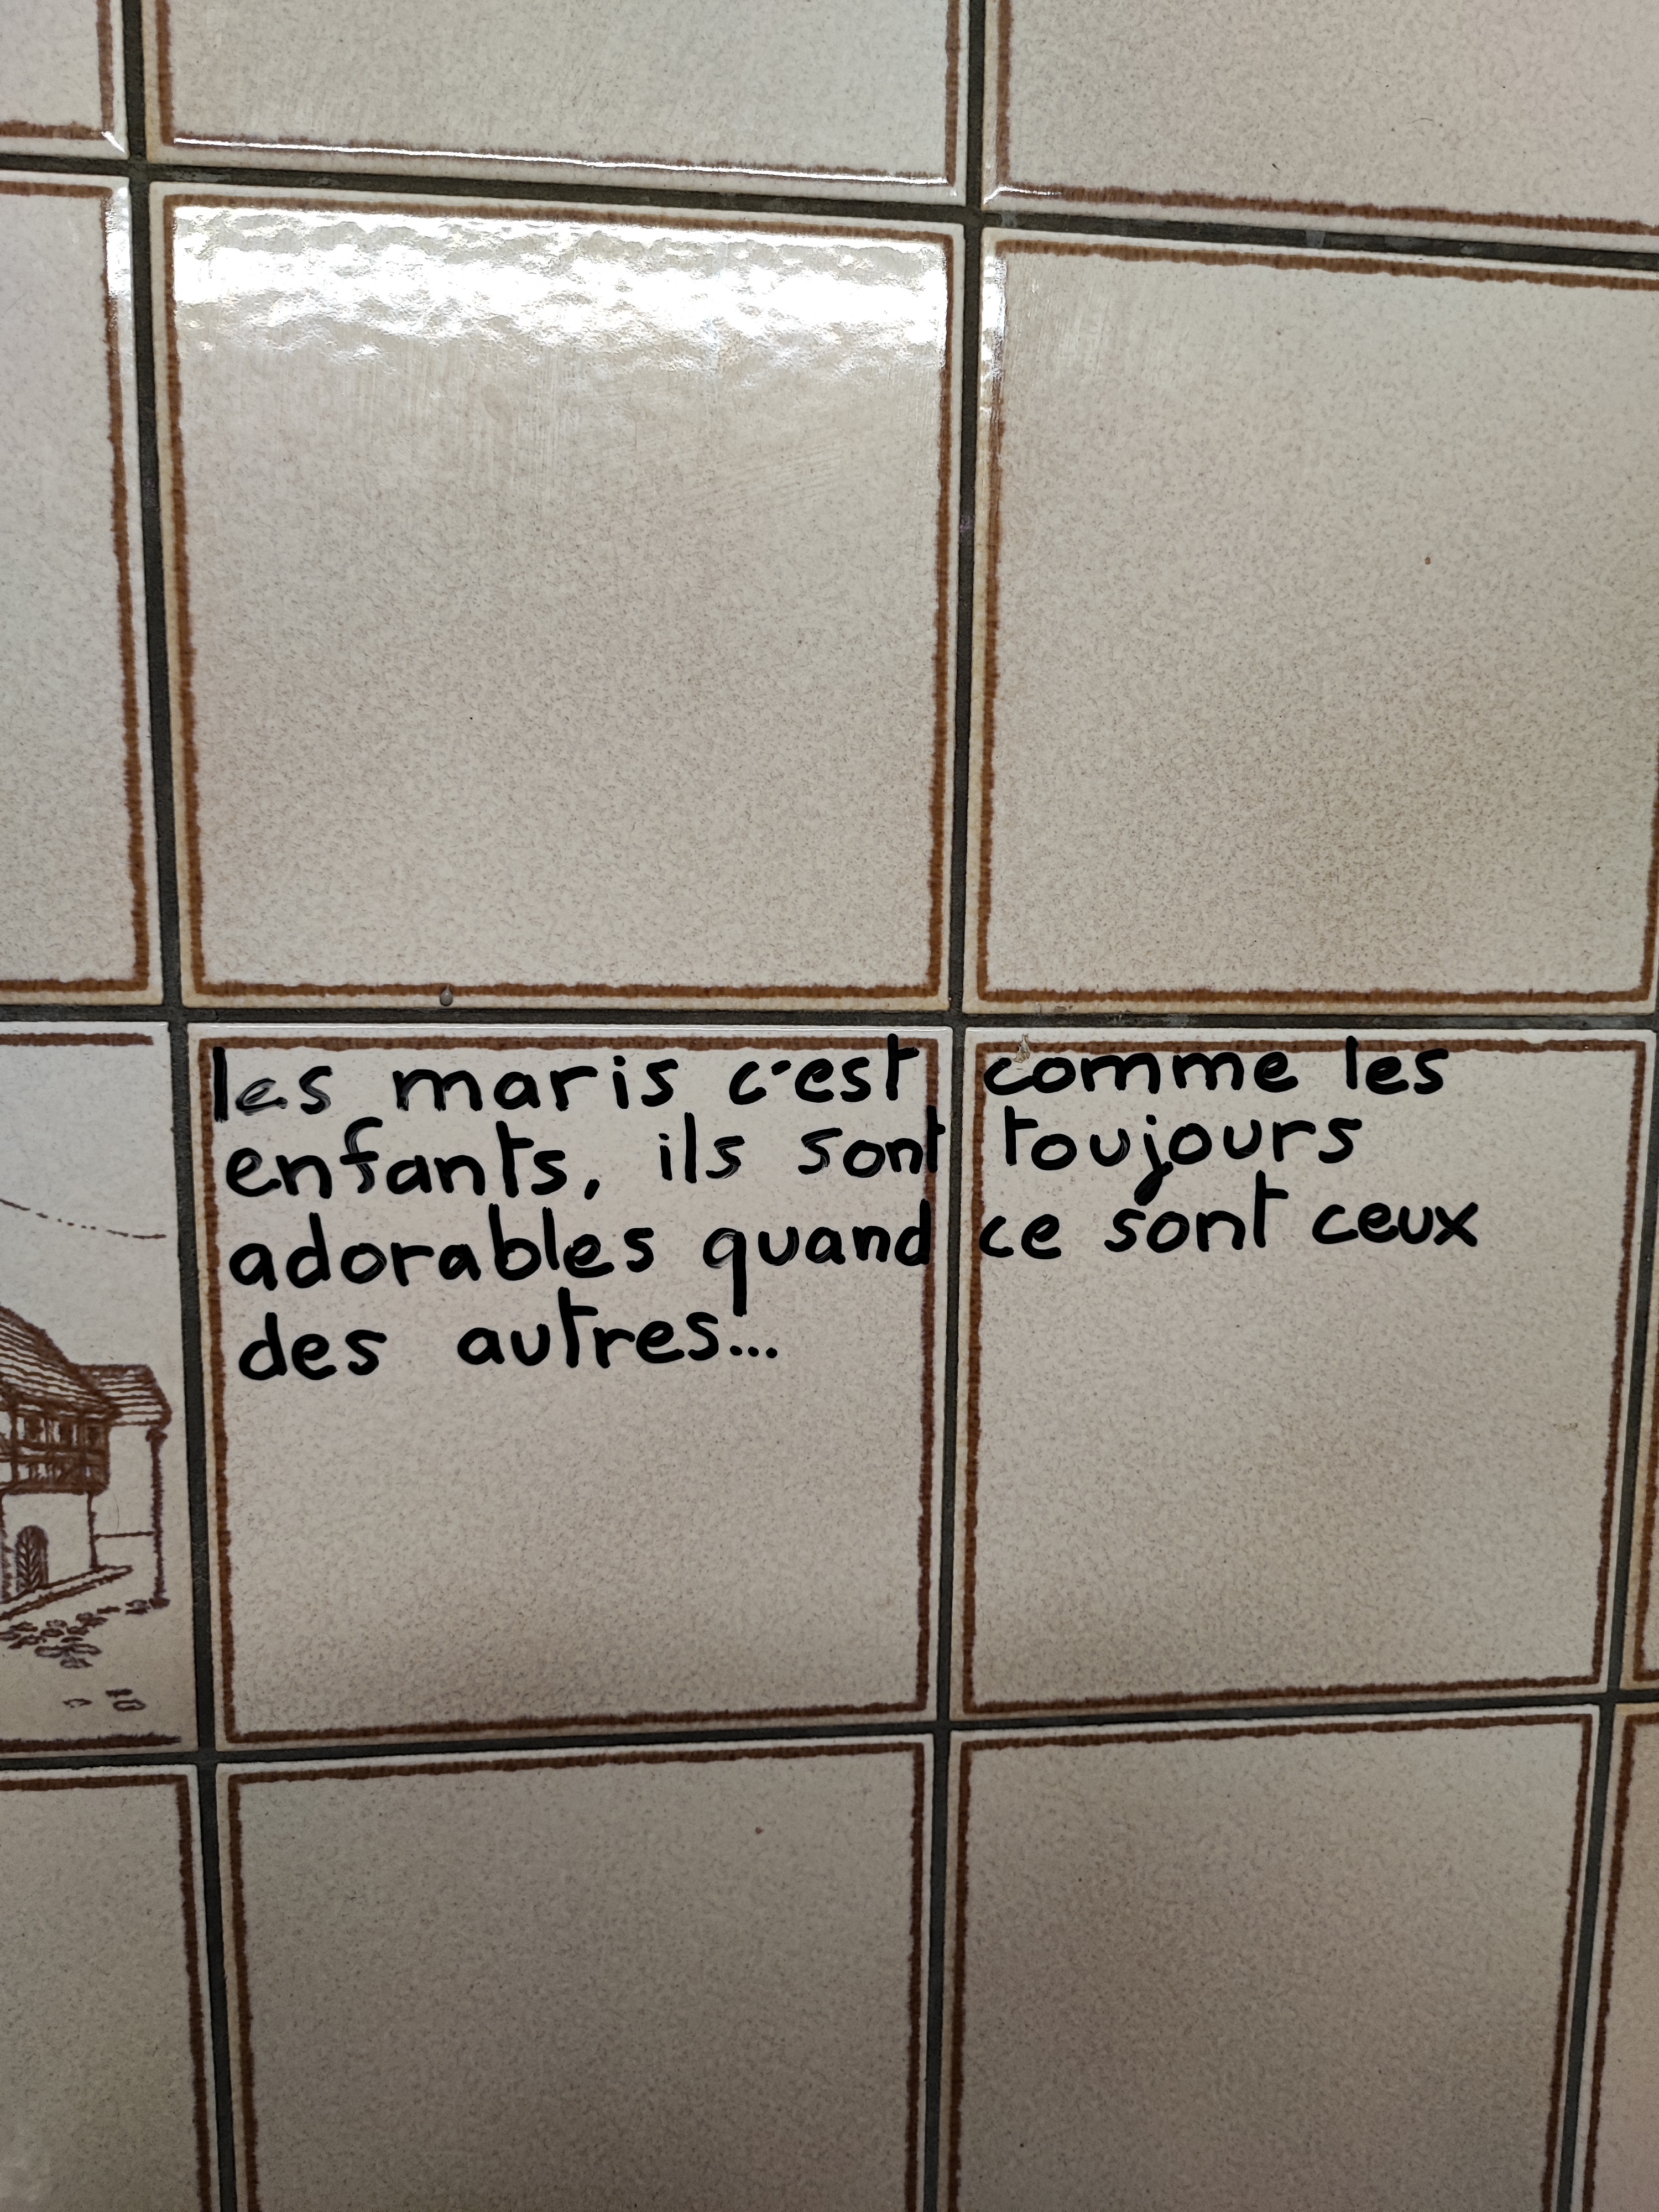 les maris c'est comme les
enfants, ils sont toujours
adorables quand ce sont ceux
des autres...